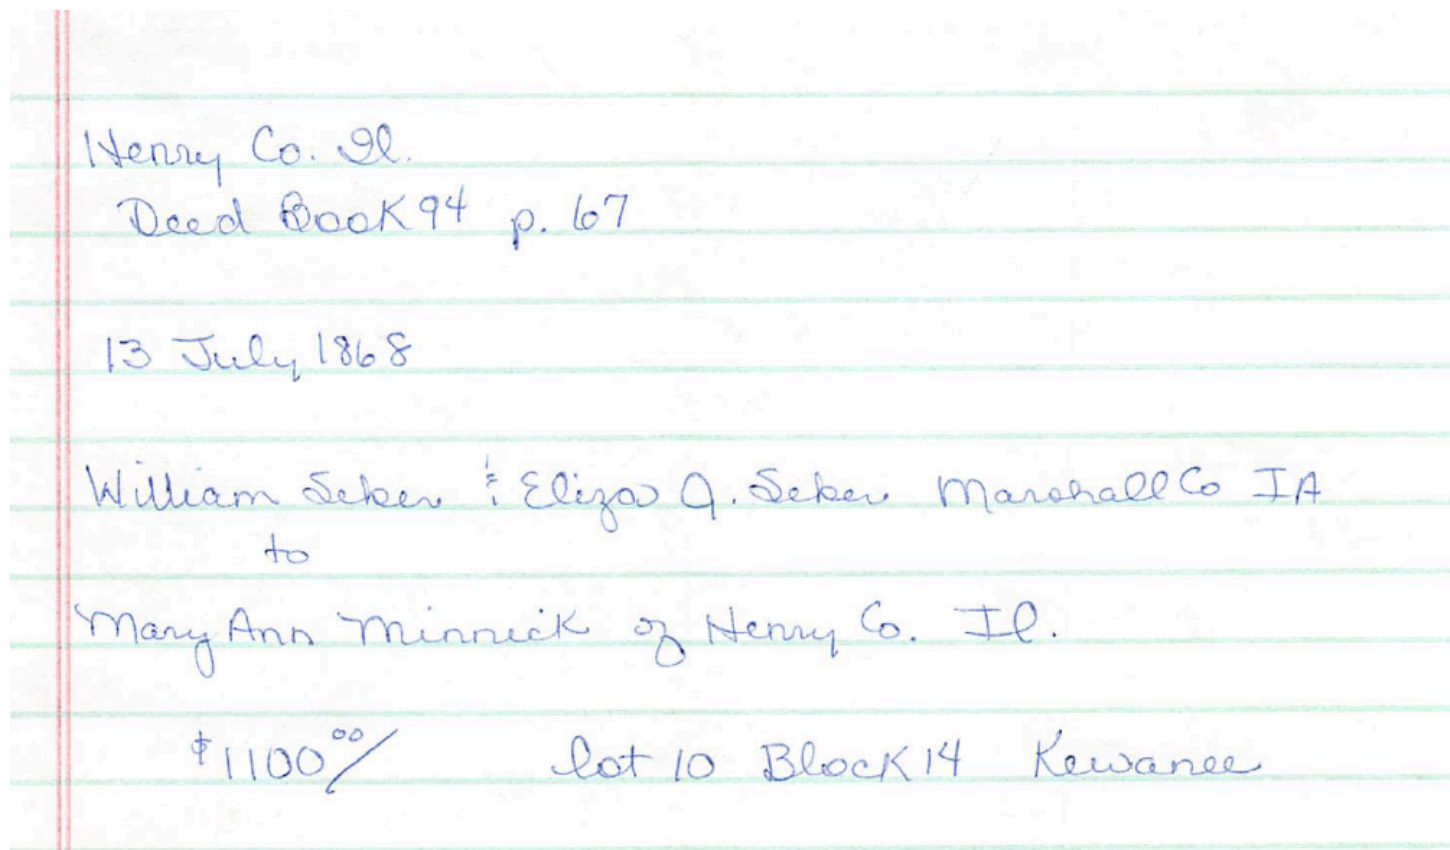 Henry Co. Il.
Deed Book 94 p. 67
13 July 1868
William Seker & Eliza A. Seker Marshall Co IA
to
Mary Ann Minnick of Henry Co. Il.
$1100⁰⁰/ lot 10 Block 14 Kewanee